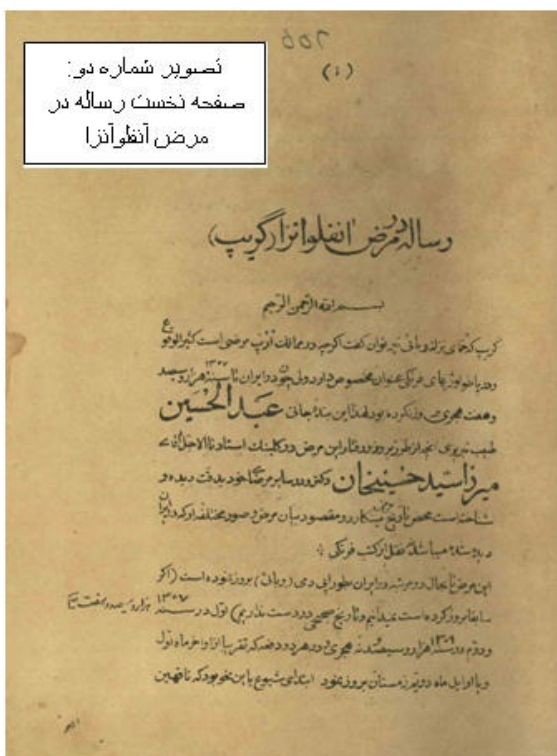 تصویر شماره دو:
صفحه نخست رساله در
مرض آنفلوآنزا
(۱)
رساله در مرض انفلوانزا (گریپ)
بسم الله الرحمن الرحیم
کریپ که حمای نزله وبائی نیز توان گفت اگرچه در ممالک اروپ مرضی است کثیرالوقوع
و در پاطولوژیهای فرنگی عنوان مخصوص دارد ولی چون در ایران تا سنه ۱۳۰۷ هزار و سیصد
و هفت هجری بروز نکرده بود لهذا این بنده جانی عبدالحسین
طبیب تبریزی آنچه از طرز بروز و رفتار این مرض در کلینیک استاد ناالاجل آقای
میرزا سید حسینخان دکتر و در سایر مرضای خود بدقت دیده و
شناخته است محض تاریخ مینگارد و مقصود بیان مرض و صور مختلفه او که در ایران
دیده شده میباشد نه نقل از کتب فرنگی
این مرض تا بحال دو مرتبه در ایران بطور اپیدمی (وبائی) بروز نموده است (اگر
سابقا بروز کرده است نمیدانیم و تاریخ صحیحی در دست نداریم) اول در سنه ۱۳۰۷ هزار و سیصد و هفت
و دوم در سنه ۱۳۰۹ هزار و سیصد و نه هجری و در هر دو دفعه که تقریبا از اواخر ماه اول
و یا اوایل ماه دویم زمستان بروز نمود ابتدای شیوع با این نحو بود که ناقهین